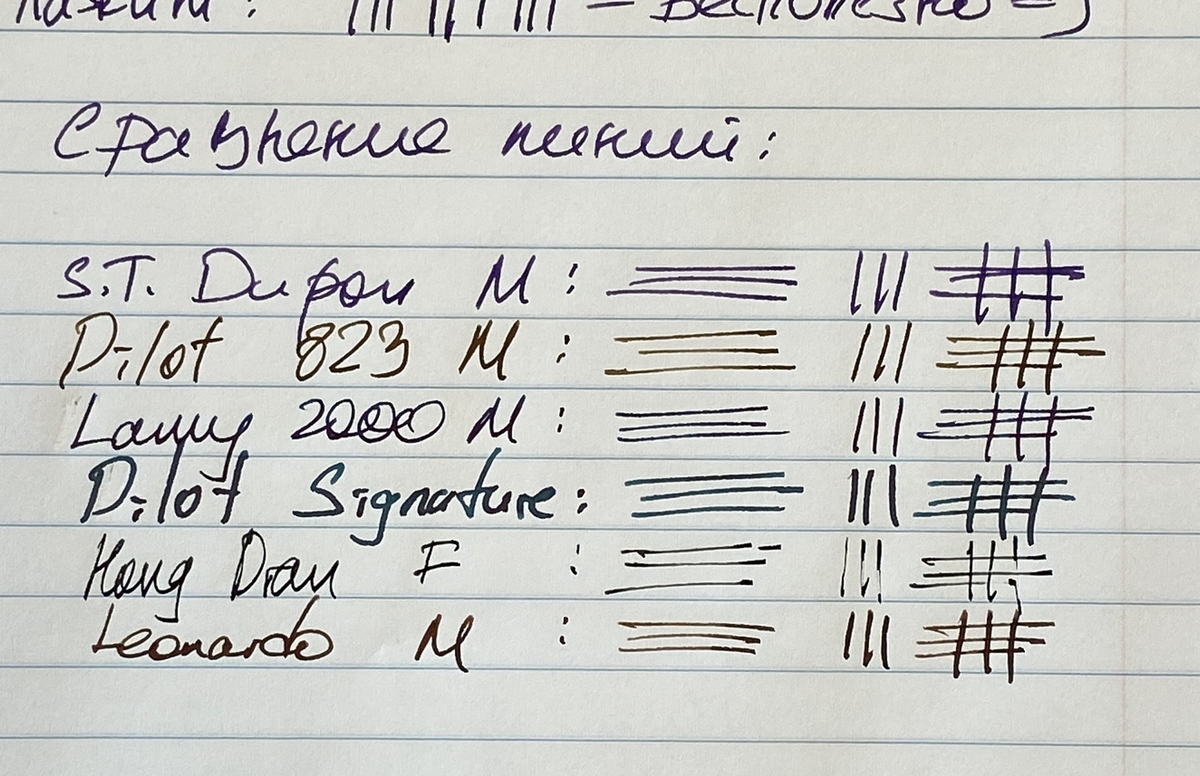 нажим: – Бесполезно =)
Сравнение линий:
S.T. Dupon M:
Pilot 823 M:
Lamy 2000 M:
Pilot Signature:
Hong Dian F :
Leonardo M :